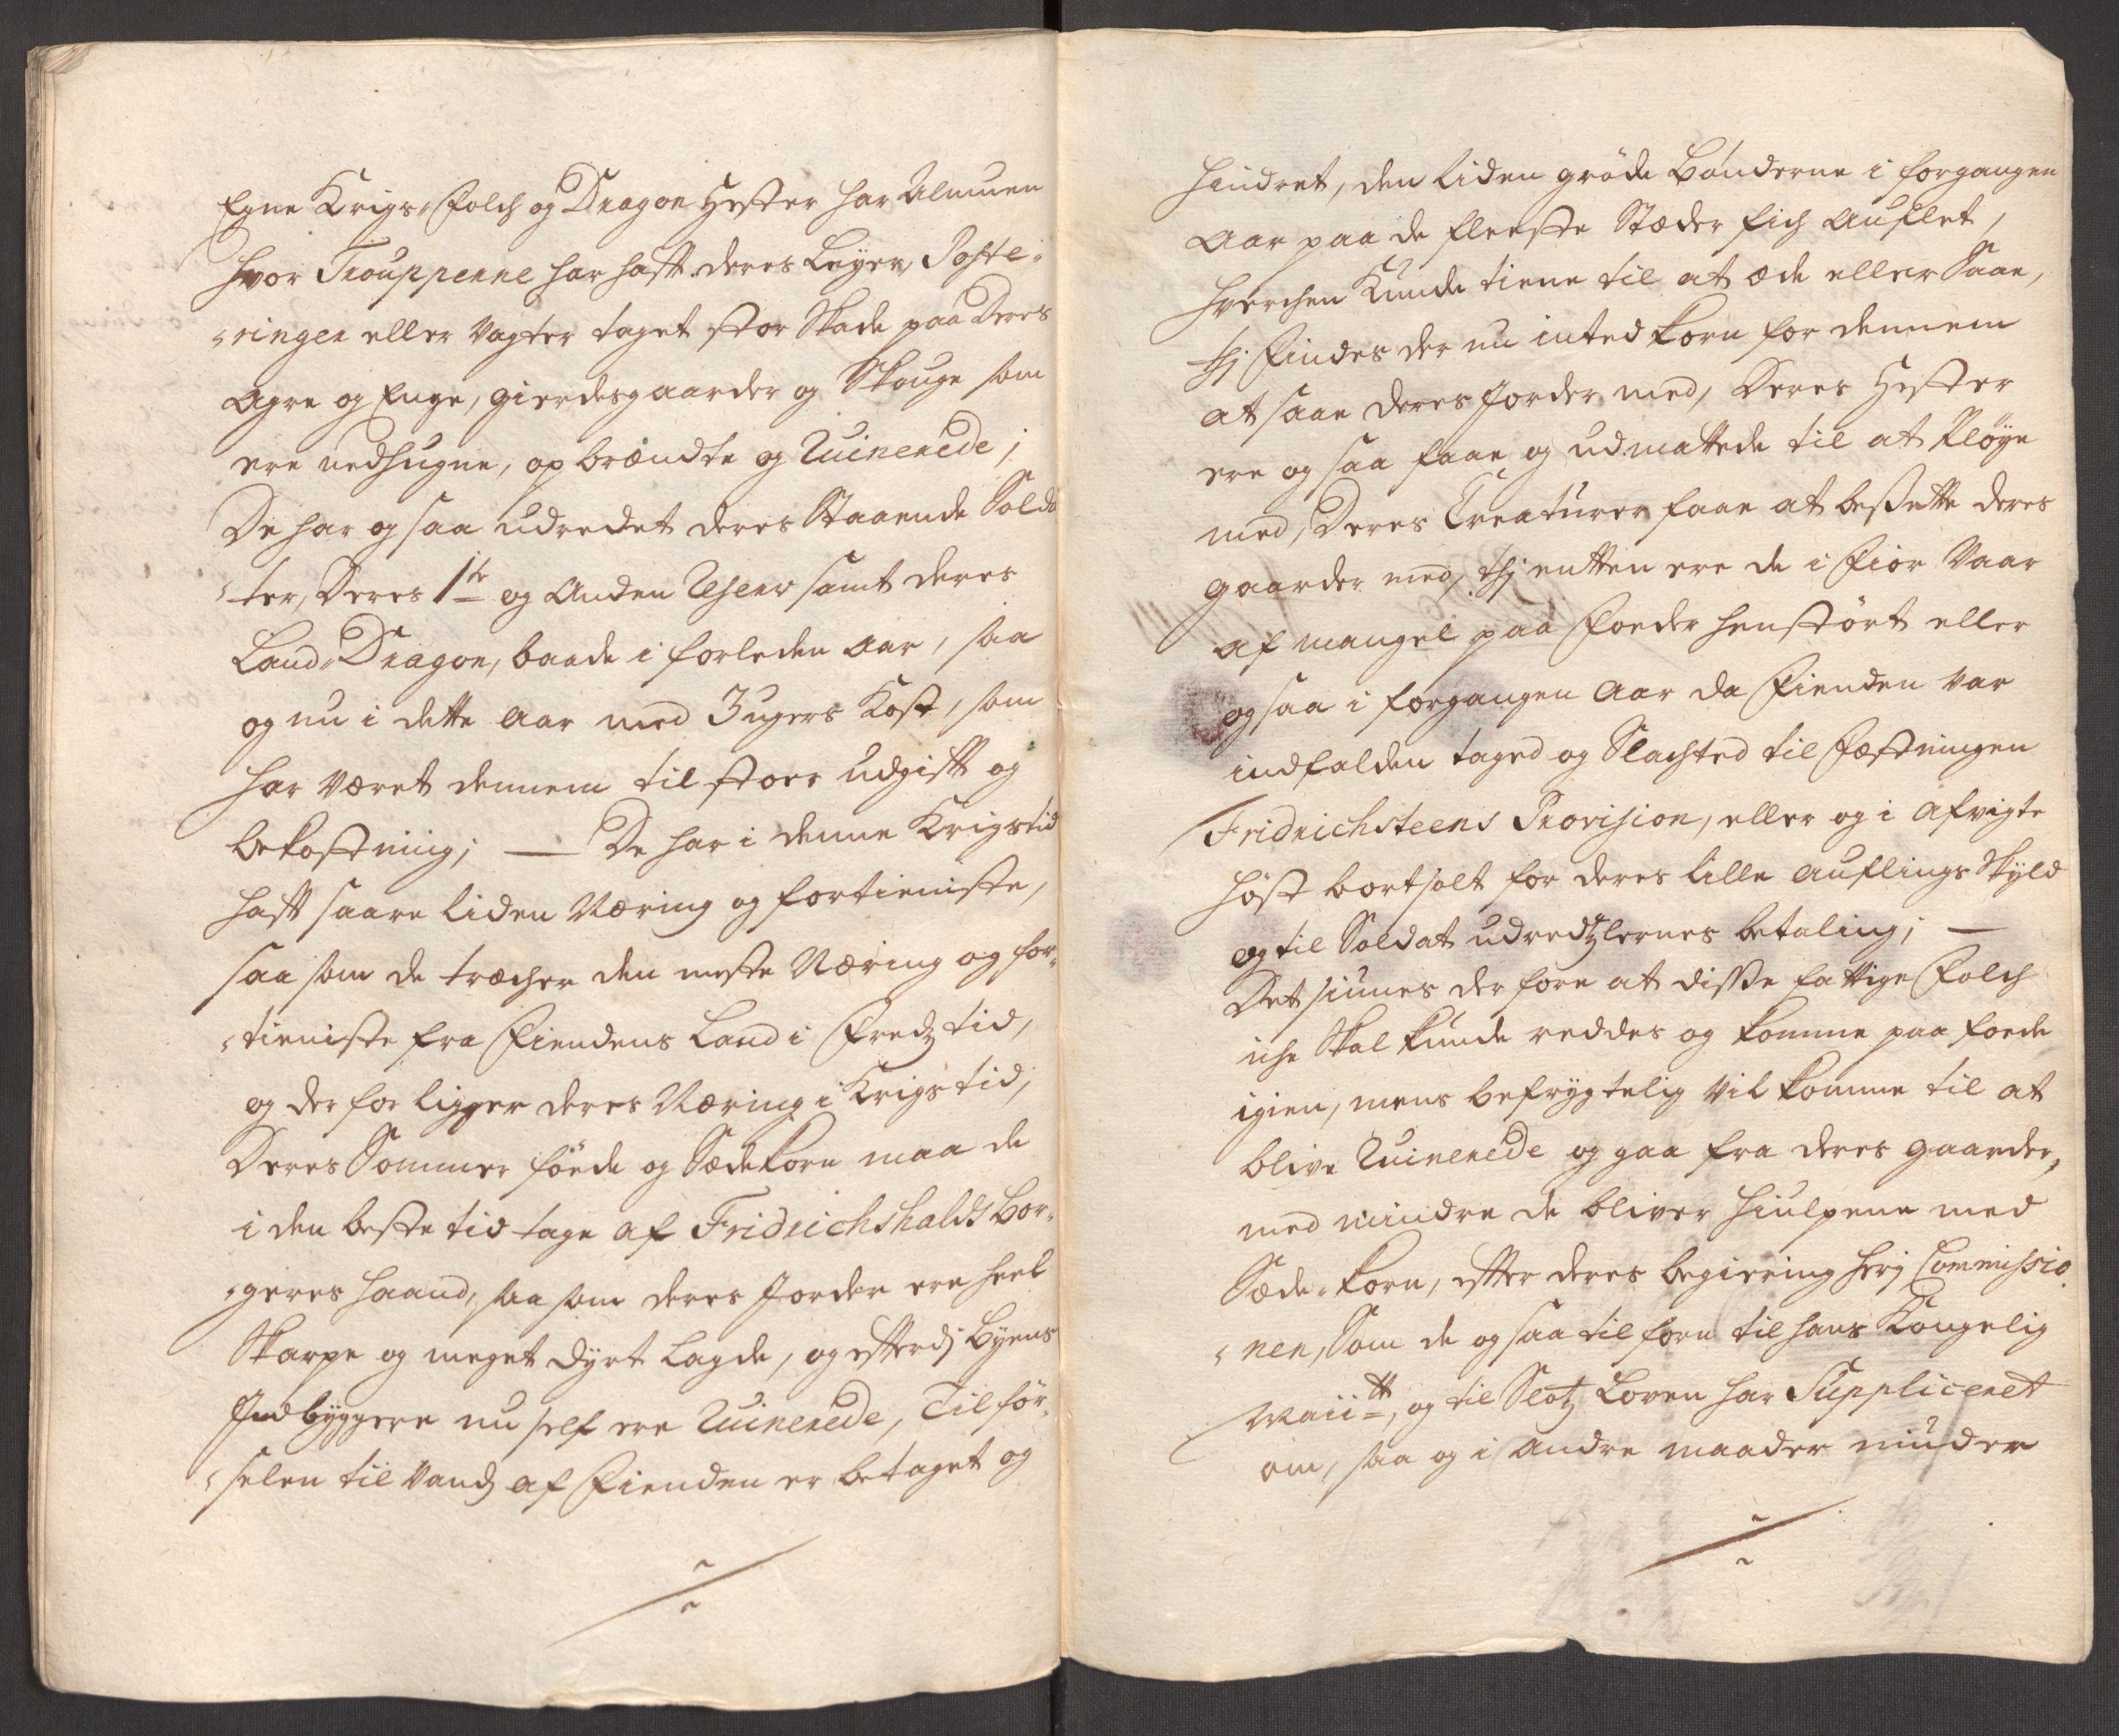 Egne Krigs-Folch og Dragon Hester har Almuen
hvor Trouppenne har hafft deres Leyer, Poste-
-ringer eller Vagter taget stor Skade paa Deres
Agre og Enge, gierdesgaarder og Skouge som
ere nedhugne, opbrændte og Ruinerede;
De har og saa udredet deres Staaende Solda
-ter, Deres 1te og Anden Reserv samt deres
Land-Dragon, baade i forleden Aar, saa
og nu i dette Aar med 3 ugers Kost, som
har været dennem til stoer udgifft og
bekostning; — De har i denne Krigstid
hafft saare liden Næring og fortieniste,
saa som de træcher den meste Næring og for-
-tieniste fra Fiendens Land i Fredz tid,
og der for ligger deres Næring i Krigs tid;
Deres Sommer föede og Sædekorn maa de
i den beste tid tage af Fridrichshalds Bor-
-geres haand, saa som deres Jorder ere heel
Skarpe og meget dyrt lagde, og efterdj Byens
Indbyggere nu self ere Ruinerede, Tilför-
-selen til Vandz af Fienden er betaget og
hindret, den liden gröde Bönderne i forgangen
Aar paa de fleeste Stæder fich Auflet,
hverchen Kunde tiene til at æde eller Saae,
thj findes der nu inted korn for dennem
at saae deres Jorder med, Deres Hester
ere og saa faae og udmattede til at Pløye
med, Deres Creaturer faae at besette deres
gaarder med, thj entten ere de i Fior Vaar
af mangel paa Foeder henstört eller
og saa i forgangen Aar da Fienden var
indfalden taged og Slachted til Fæstningen
Fridrichsteens Provision, eller og i afvigte
höst bortsolt for deres lille Auflings Skyld
og til Soldat udredtzlernes betaling; —
Det siunes der fore at disse fattige Folch
iche Skal kunde reddes og komme paa foede
igien, mens befrygtelig vil komme til at
blive Ruinerede og gaa fra deres gaarder,
med mindre de bliver hiulpene med
Sæde-korn, efter deres begiering hos Commissio
-nen, Som de og saa til forn til hans Kongelig
Maiitt, og til Slotz Loven har Suppliceret
om, saa og i andre maader